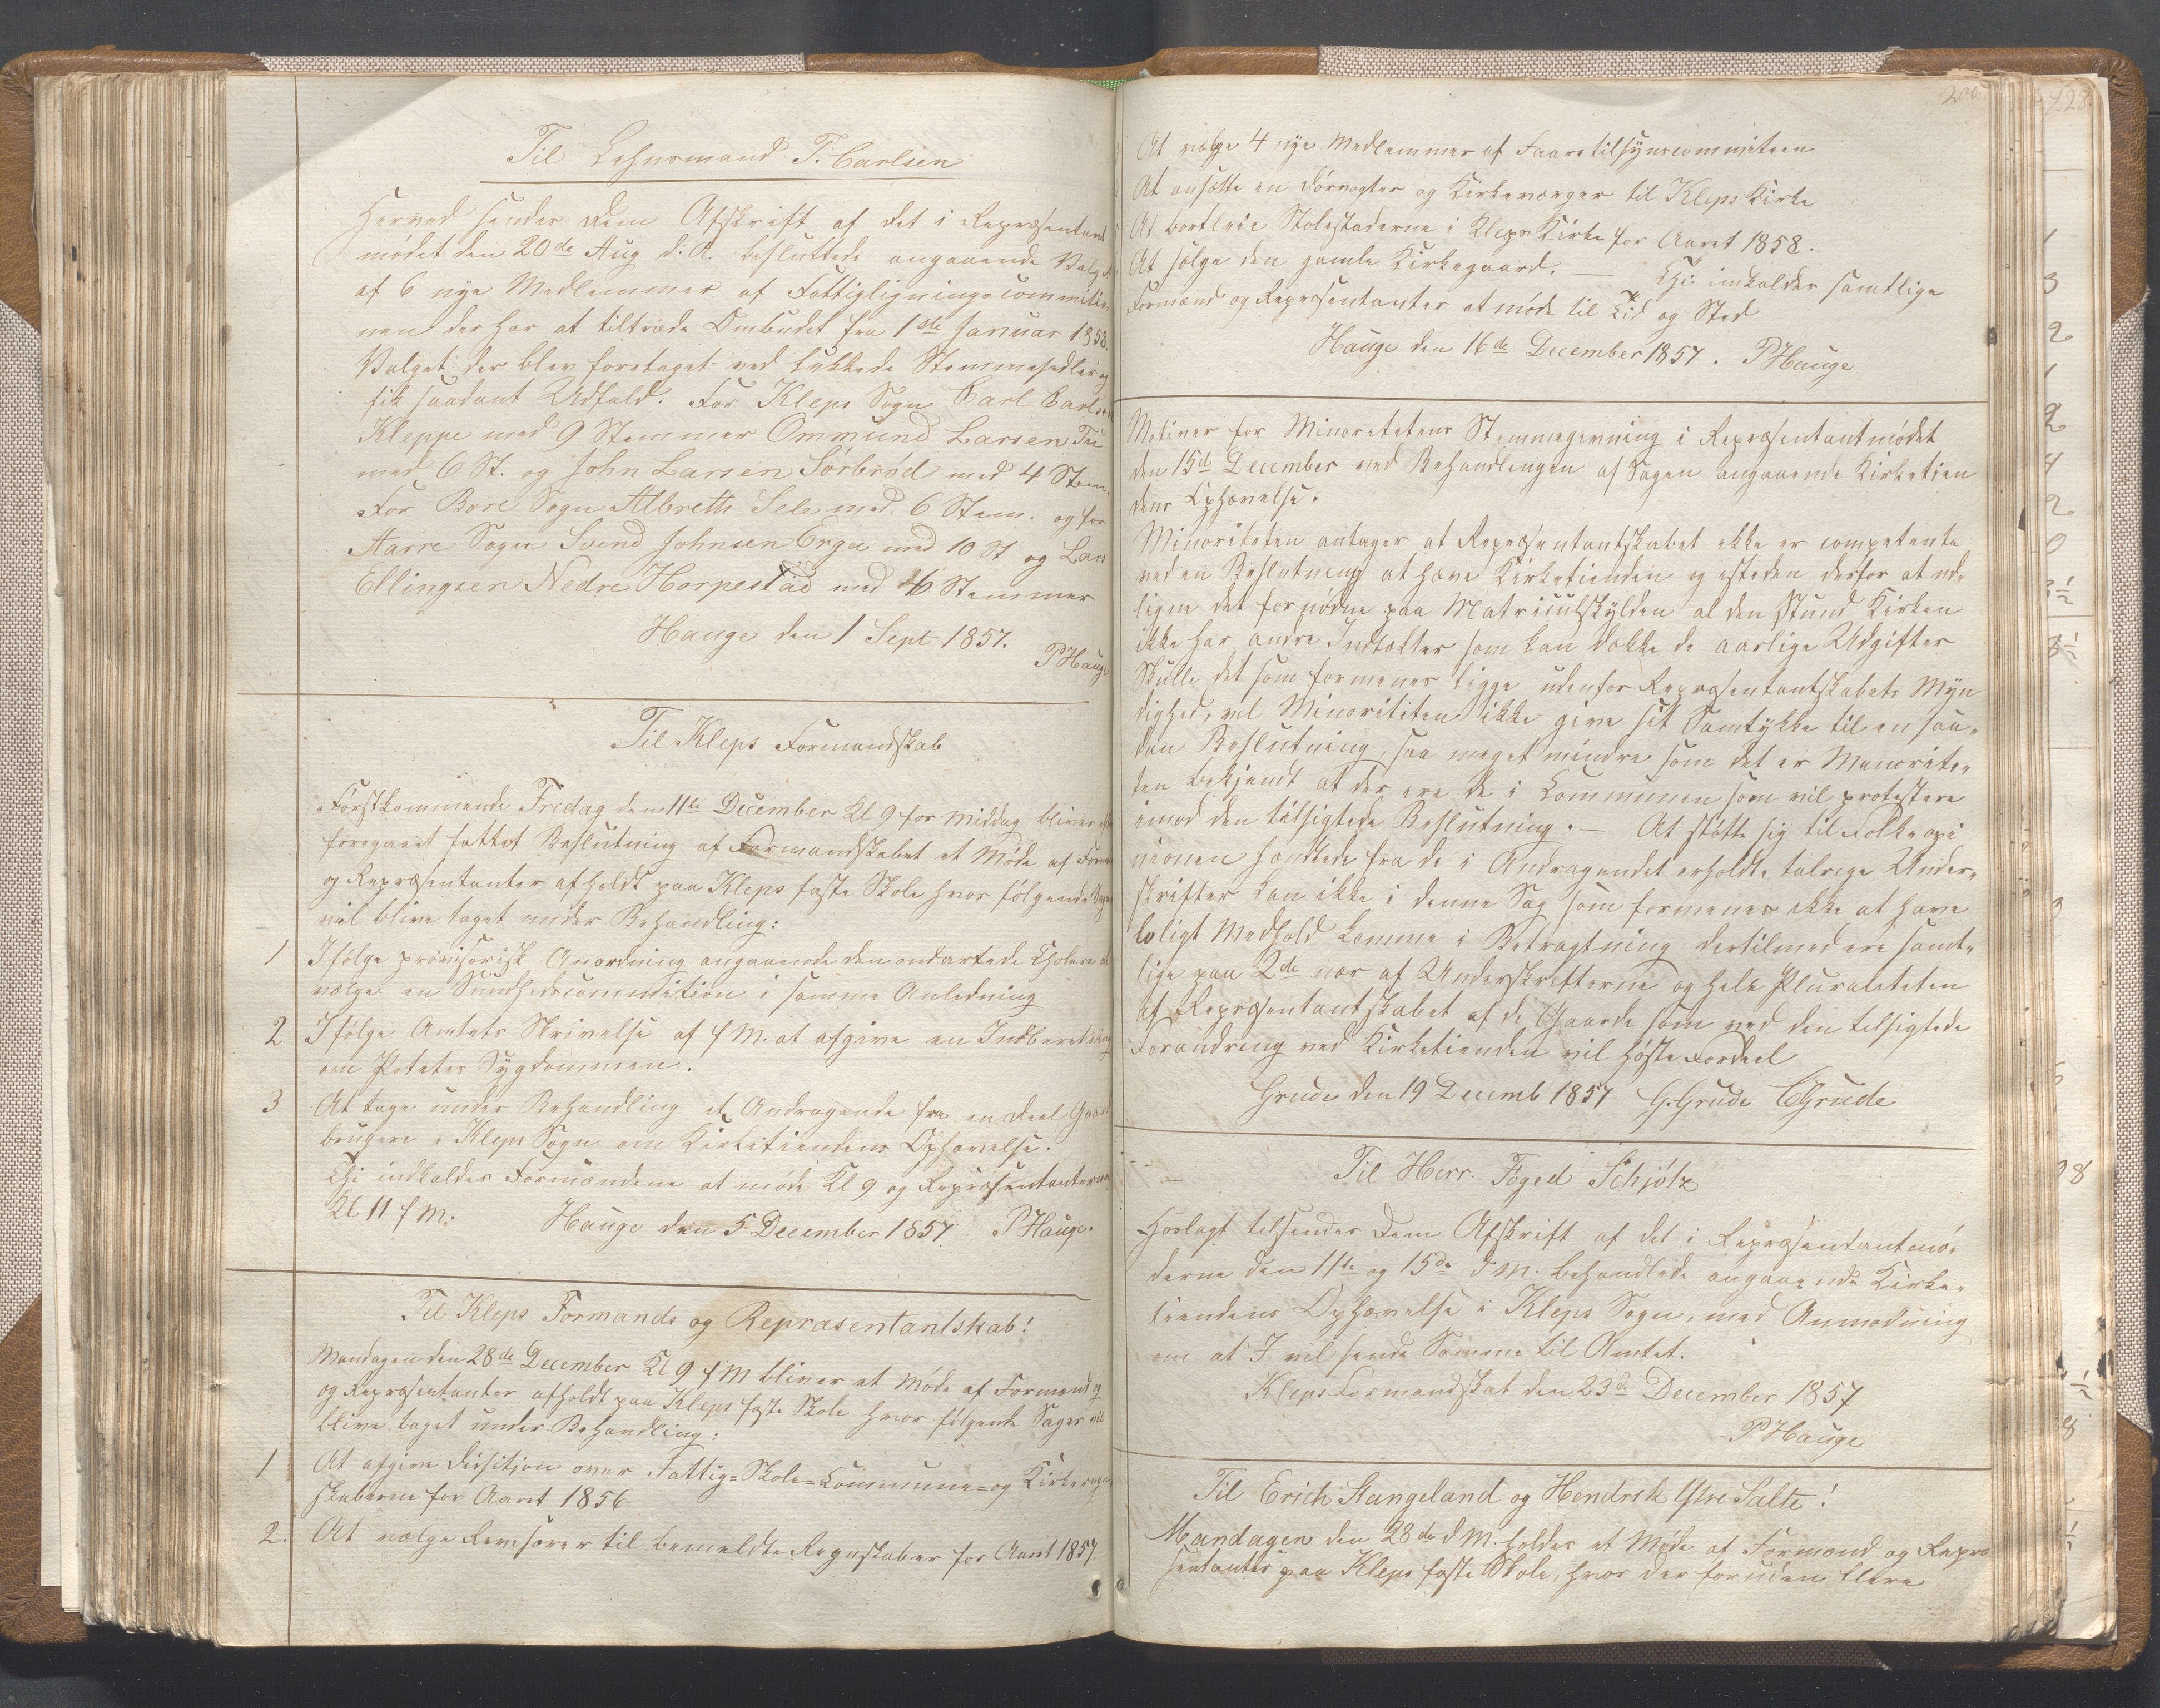 Til Lehnsmand T. Carlsen
Herved sendes Dem Afskrift af det i Repræsentant
mødet den 20de Aug d. A. besluttede angaaende Valg
af 6 nye Medlemmer af Fattigligningscommitio
nen der har at tiltræde Ombudet fra 1ste Januar 1858.
Valget der blev foretaget ved lukkede Stemmesedler og
fik saadant Udfald. For Kleps Sogn Carl Carlsen
Kleppe med 9 Stemmer Ommund Larsen Tu
med 6 St. og John Larsen Sørbrød med 4 Stem.
For Bore Sogn Albreth Sele med 6 Stem. og for
Aarre Sogn Svend Johnsen Erga med 10 St og Lars
Ellingsen Nedre Horpestad med 6 Stemmer
Hauge den 1 Sept 1857.
P Hauge
Til Kleps Formandskab
Førstkommende Fredag den 11te December Kl 9 for Middag bliver efter
foregaaet fattet Beslutning af Formandskabet et Møde af Formænd
og Repræsentanter afholdt paa Kleps faste Skole hvor følgende Sager
vil blive taget under Behandling:
1 Ifølge provisorisk Anordning angaaende den ondartede Cholera at
vælge en Sundhedscommition i samme Anledning
2 Ifølge Amtets Skrivelse af f M. at afgive en Indberetning
om Potetes Sygdommen.
3 At tage under Behandling et Andragende fra en Deel Gaard
brugere i Kleps Sogn om Kirketiendens Ophævelse.
Thi indkaldes Formændene at møde Kl 9 og Repræsentanterne
Kl 11 f M. Hauge den 5 December 1857 P Hauge.
Til Kleps Formands og Repræsentantskab!
Mandagen den 28de December Kl 9 f M bliver et Møde af Formænd og
og Repræsentanter afholdt paa Kleps faste Skole hvor følgende Sager vil
blive taget under Behandling:
1 At afgive Desition over Fattig=Skole=Commune=og Kirkeregn
skaberne for Aaret 1856
2. At vælge Revisorer til bemeldte Regnskaber for Aaret 1857.
200
At vælge 4 nye Medlemmer af Faaretilsynscommiteen
At ansætte en Dørvogter og Kirkeværger til Kleps Kirke
At bortleie Stolestaderne i Kleps Kirke for Aaret 1858.
At sælge den gamle Kirkegaard. — Thi indkaldes samtlige
Formænd og Repræsentanter at møde til Tid og Sted
Hauge den 16de December 1857. P Hauge
Motiver for Minoritetens Stemmegivning i Repræsentantmødet
den 15de December ved Behandlingen af Sagen angaaende Kirketien
dens Ophævelse.
Minoriteten antager at Repræsentantskabet ikke er competente
ved en Beslutning at hæve Kirketienden og isteden derfor at ud,
ligne det fornødne paa Matriculskylden al den Stund Kirken
ikke har andre Indtægter som kan dække de aarlige Udgifter
Skulle det som formenes ligge udenfor Repræsentantskabets Myn
dighed, vil Minoriteten ikke give sit Samtykke til en saa,
dan Beslutning, saa meget mindre som det er Menorite,
ten bekjendt at der ere de i Communen som vil protestere
imod den tilsigtede Beslutning. — At støtte sig til Folkeopi
nionen hendtede fra de i Andragendet erholdte talrige Under,
skrifter kan ikke i denne Sag som formenes ikke at have
loligt Medhold komme i Betragtning dertilmed ere samt,
lige paa 2de nær af Underskrifterne og hele Pluraliteten
af Repræsentantskabet af de Gaarde som ved den tilsigtede
Forandring ved Kirketienden vil høste Fordeel
Grude den 19 Decemb 1857 G. Grude C Grude
Til Herr Foged Schjøtz
Hoslagt tilsendes Dem Afskrift af det i Repræsentantmø,
derne den 11te og 15de d M. behandlede angaaende Kirke,
tiendens Ophævelse i Kleps Sogn, med Anmodning
om at I vil sende Samme til Amtet.
Kleps Formandskab den 23de December 1857
P Hauge
Til Erich Stangeland og Hendrik Ytre Salte!
Mandagen den 28de d M. holdes et Møde af Formænd og Repræ
sentanter paa Kleps faste Skole, hvor der foruden flere